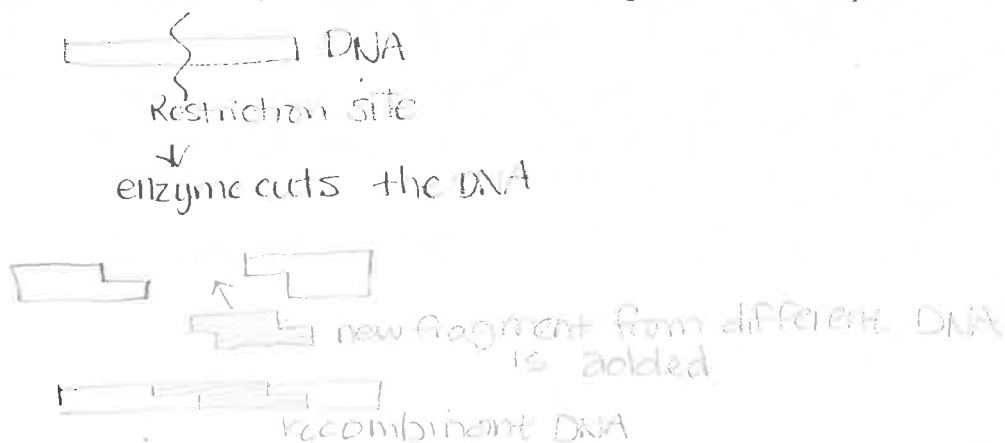 DNA
Restriction site
enzyme cuts the DNA
new fragment from different DNA
is added
recombinant DNA